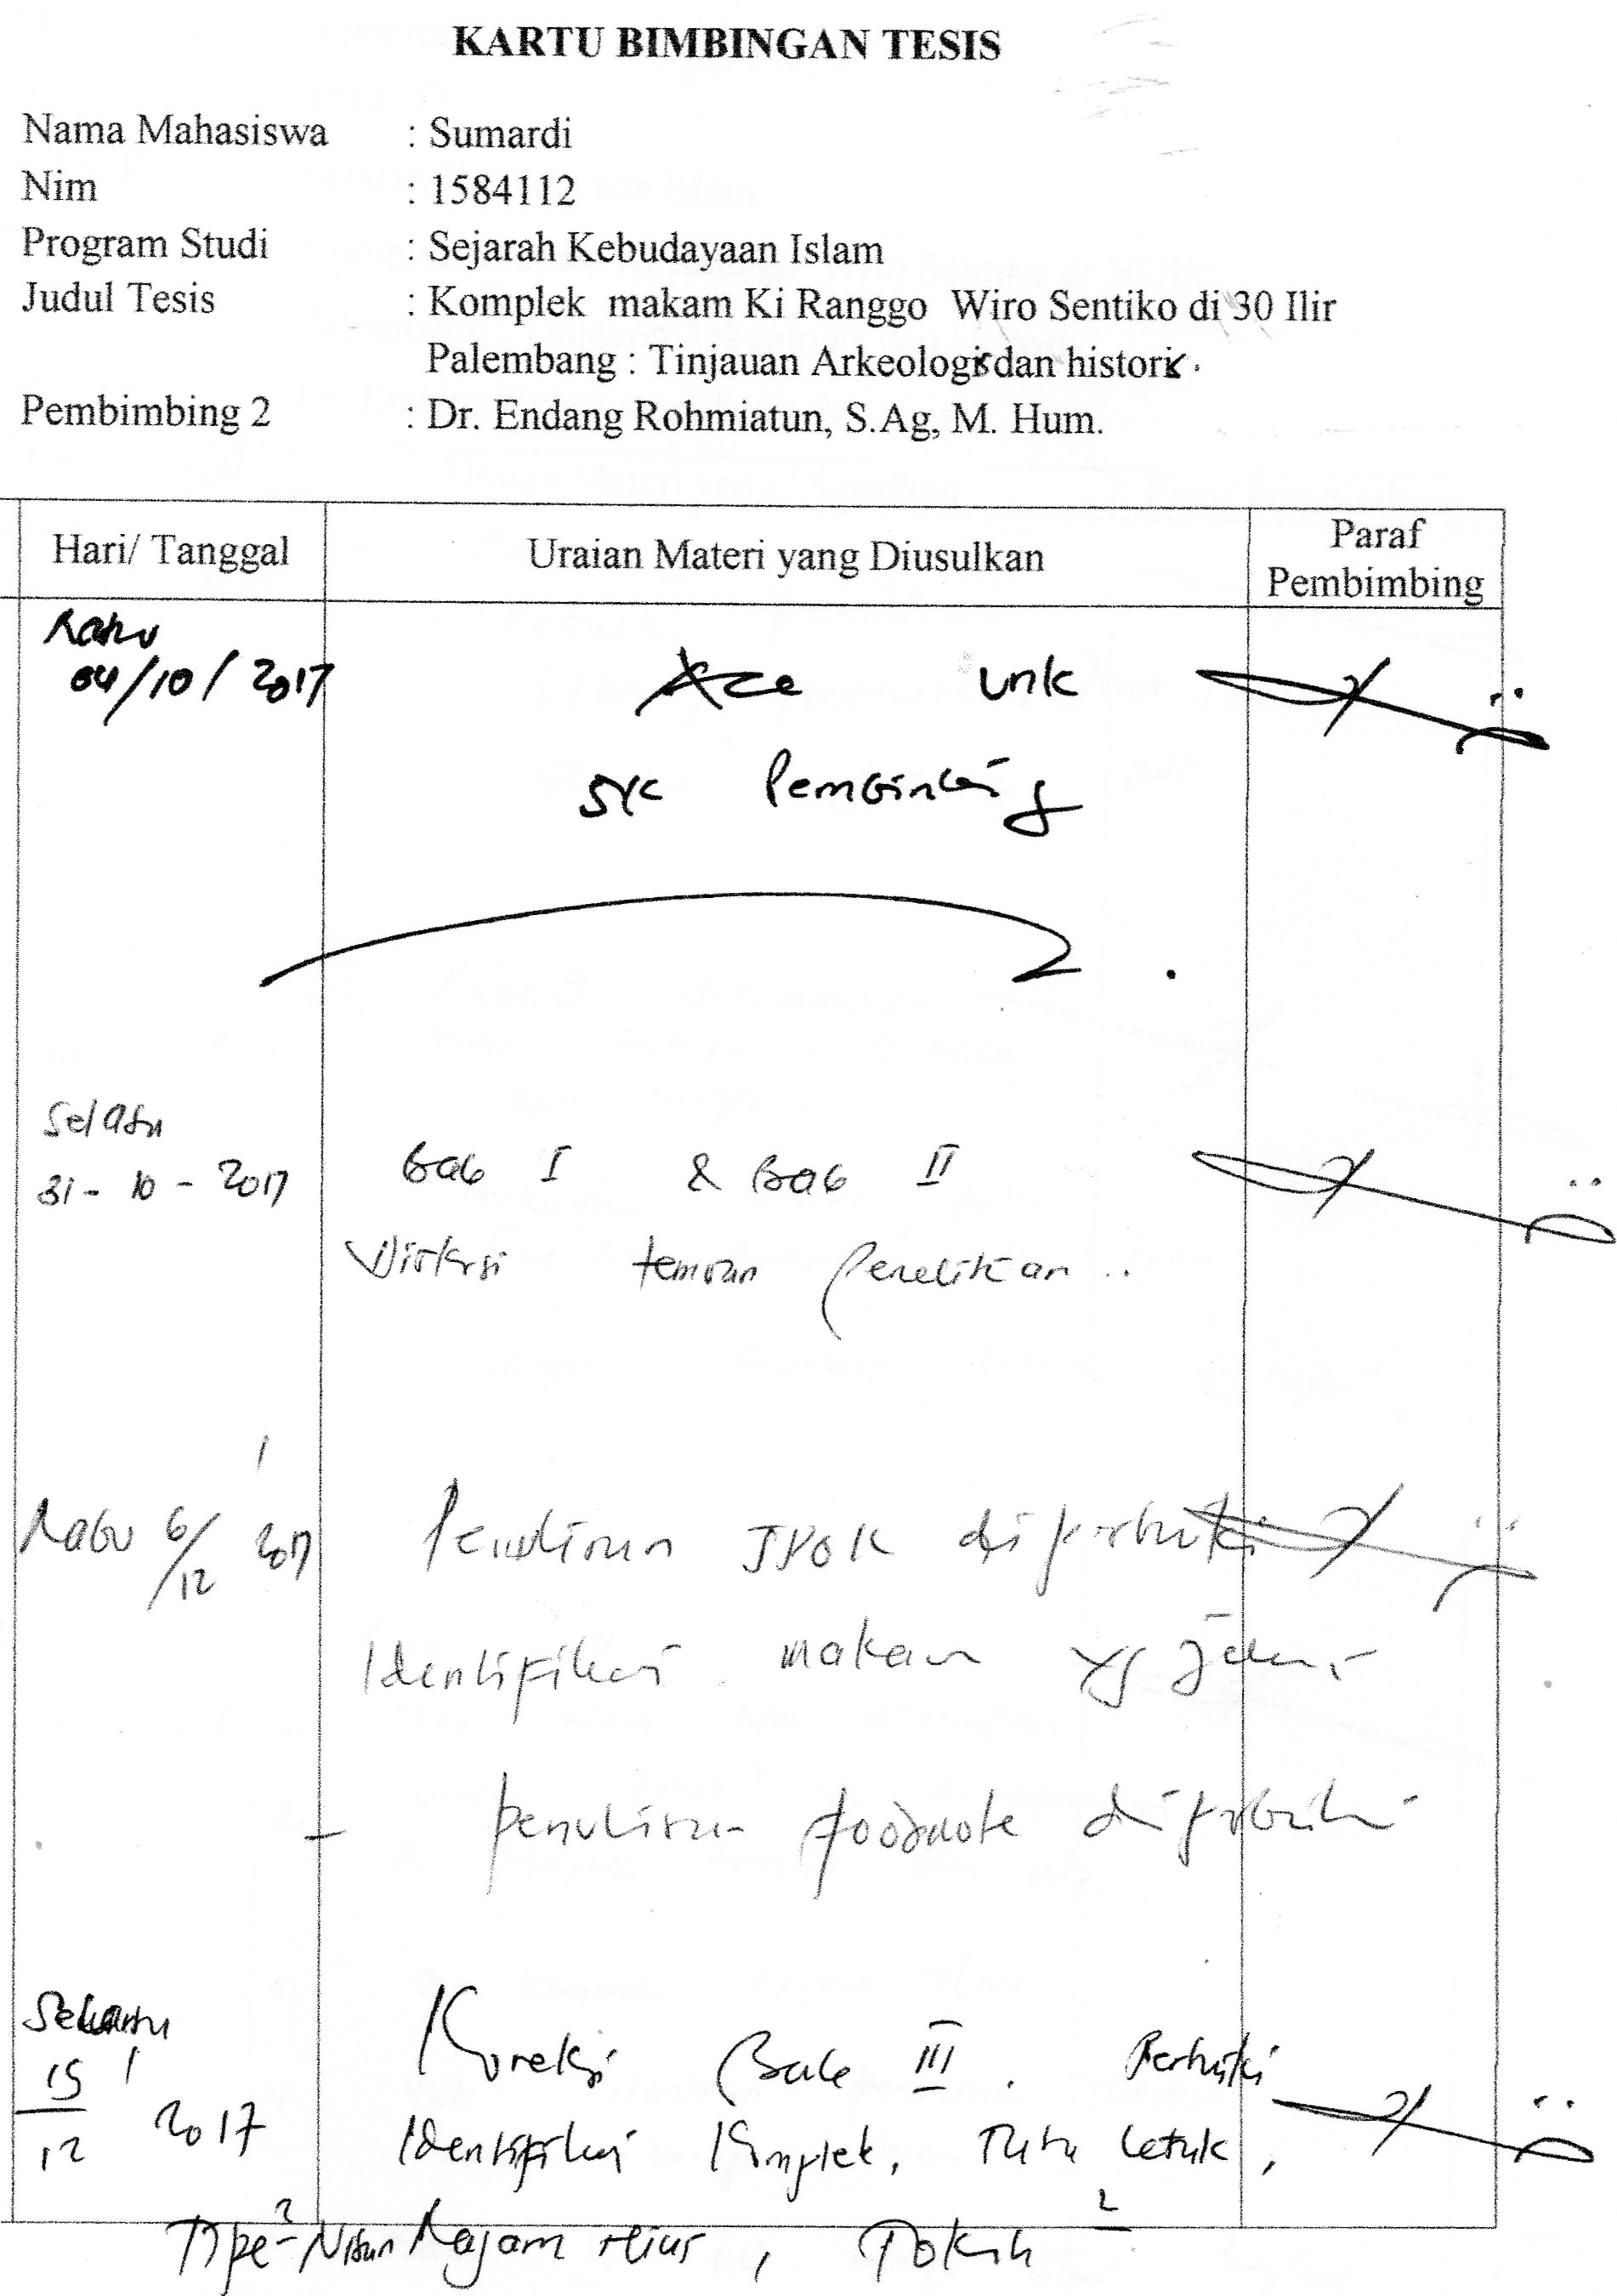 KARTU BIMBINGAN TESIS
Nama Mahasiswa : Sumardi
Nim : 1584112
Program Studi : Sejarah Kebudayaan Islam
Judul Tesis : Komplek makam Ki Ranggo Wiro Sentiko di 30 Ilir
Palembang : Tinjauan Arkeologi dan histori.
Pembimbing 2 : Dr. Endang Rohmiatun, S.Ag, M. Hum.
Hari/ Tanggal Uraian Materi yang Diusulkan Paraf Pembimbing
Rabu
04/10/2017 Acc unk
SK Pembimbing
Selasa
31-10-2017 Bab I & Bab II
Diskusi temuan penelitian ..
Rabu 6/12 2017 Penulisan diperbaiki
Identifikasi makam yg
- penulisan footnote diperbaiki
15/12 2017 Koreksi Bab III. Perbaiki
Identifikasi Komplek, Tata letak,
Tipe2 Nisan Ragam Hias, Tokoh2